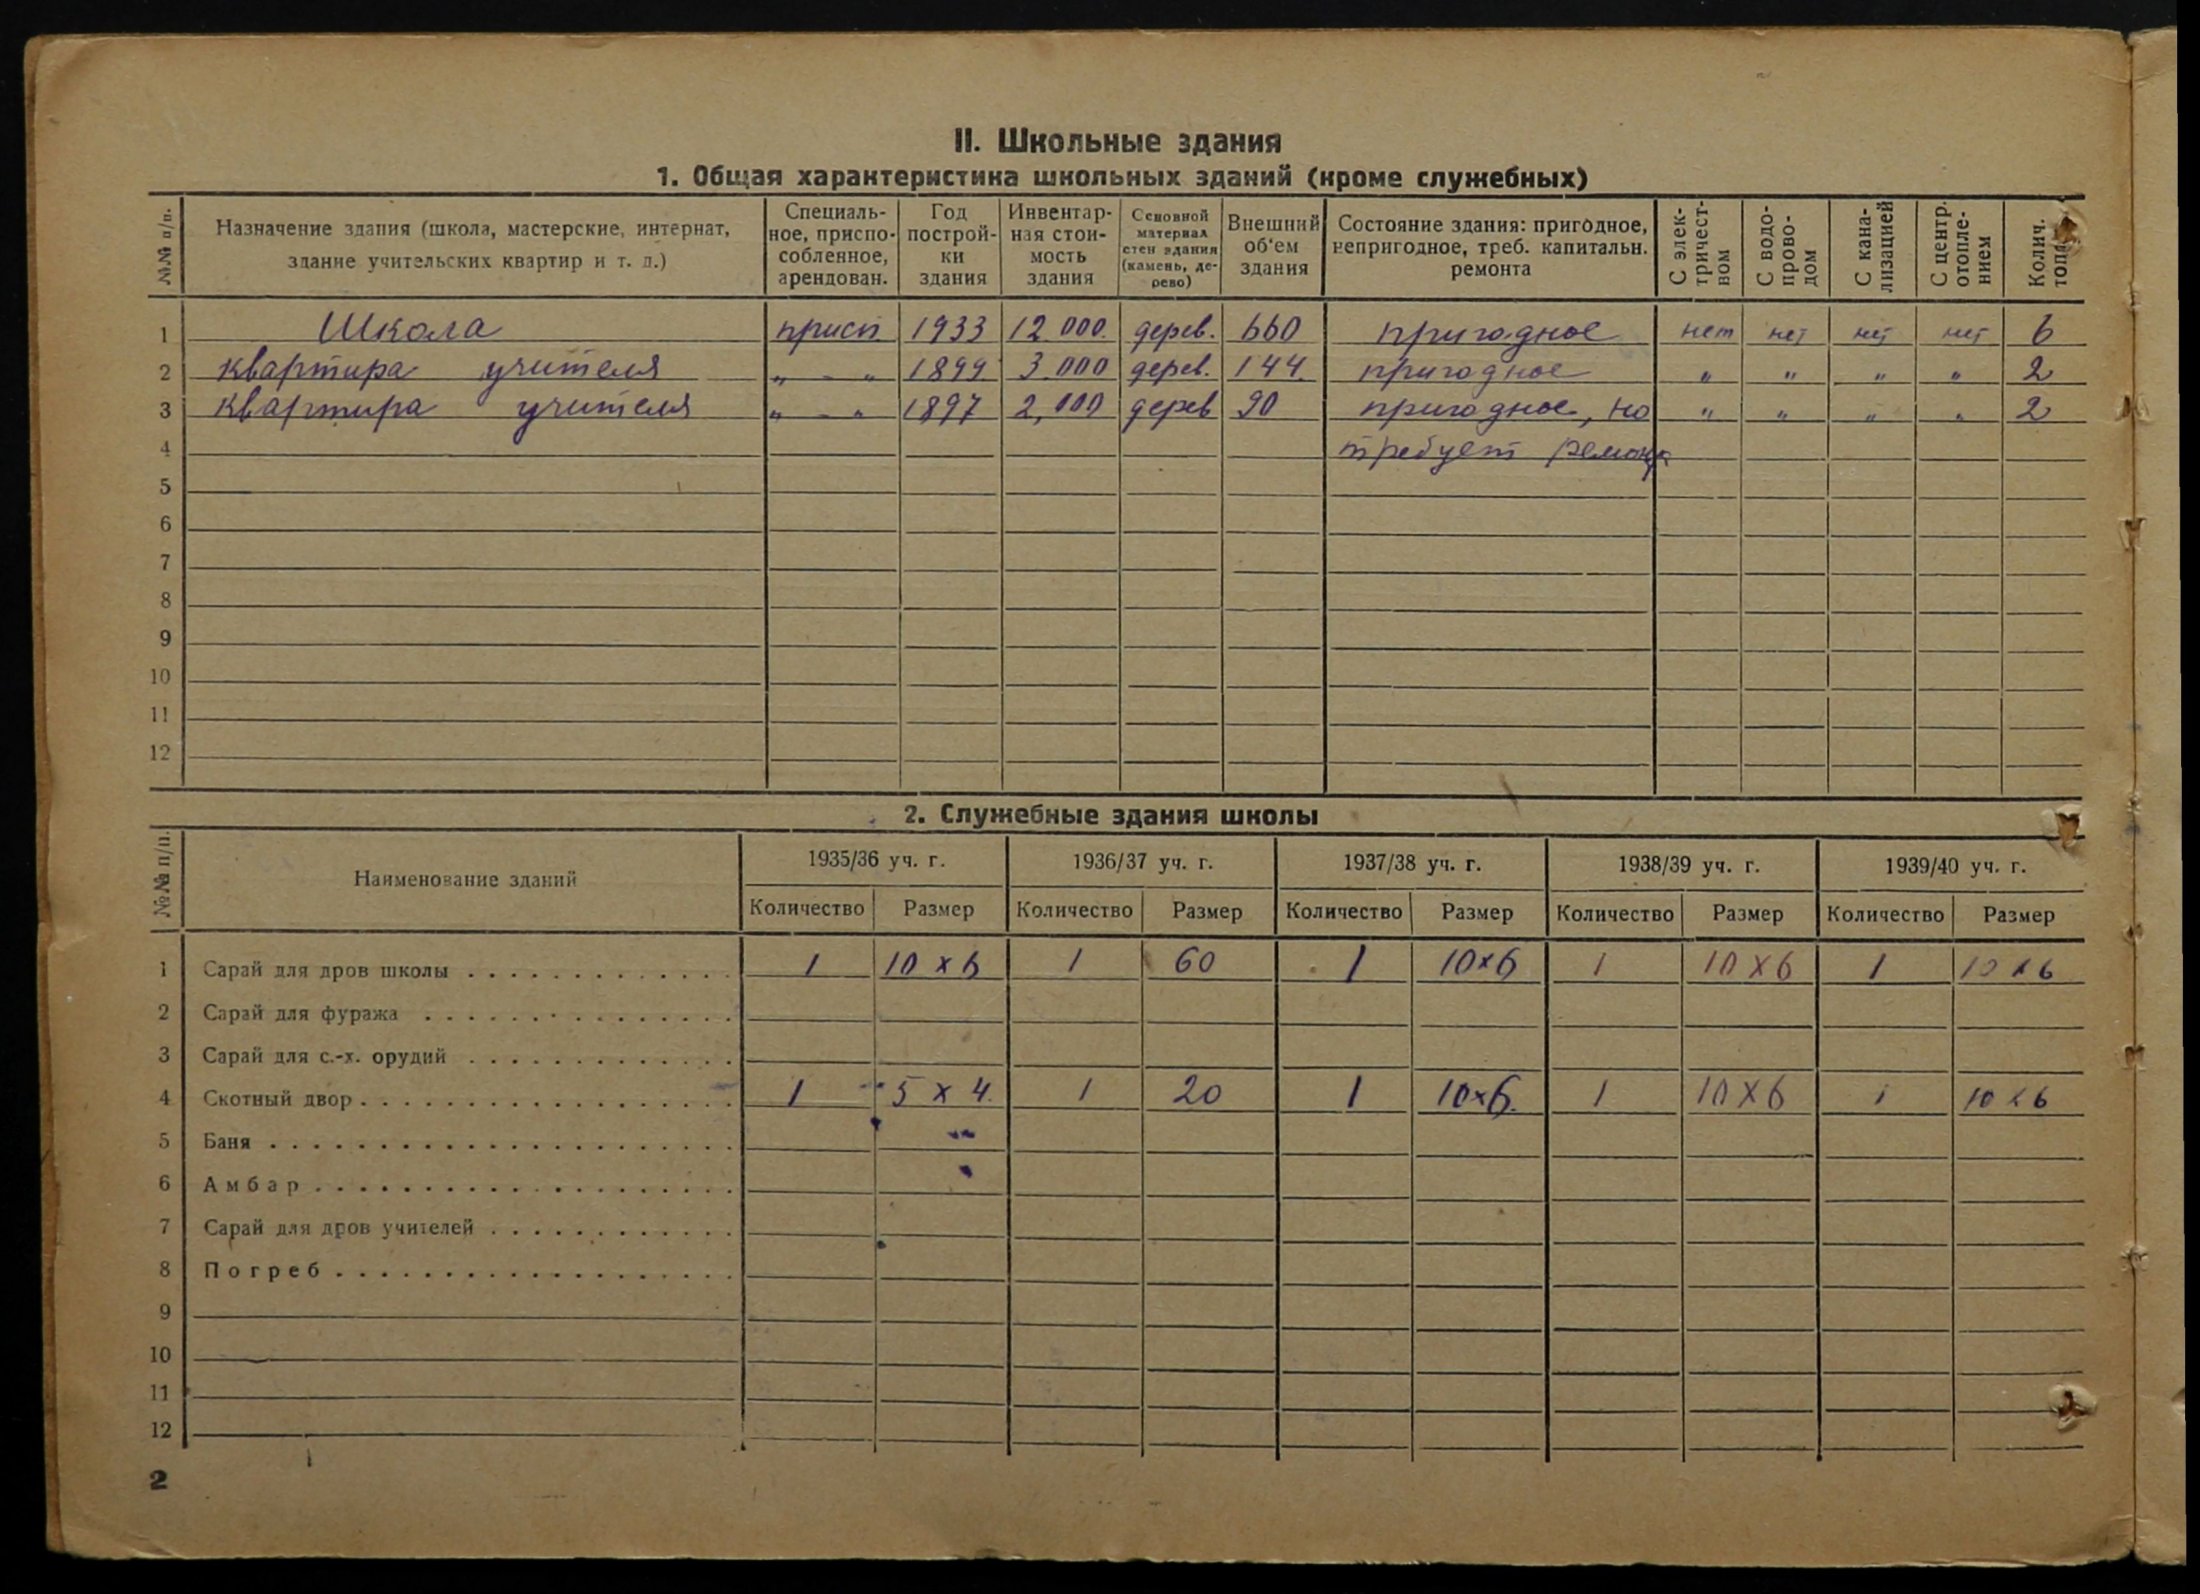 II. Школьные здания
1. Общая характеристика школьных зданий (кроме служебных)
№№ п/п.
Назначение здания (школа, мастерские, интернат,
здание учительских квартир и т. д.)
Специаль-
ное, приспо-
собленное,
арендован.
Год
построй-
ки
здания
Инвентар-
ная стои-
мость
здания
Основной
материал
стен здания
(камень, де-
рево)
Внешний
об'ем
здания
Состояние здания: пригодное,
непригодное, треб. капитальн.
ремонта
С элек-
тричест-
вом
С водо-
прово-
дом
С кана-
лизацией
С центр.
отопле-
нием
Колич.
1 Школа присп. 1933 12 000. дерев. 660 пригодное нет нет нет нет 6
2 квартира учителя „ - „ 1899 3.000 дерев. 144. пригодное „ „ „ „ 2
3 квартира учителя „ - „ 1897 2,000 дерев 90 пригодное, но „ „ „ „ 2
4 требует ремонта
5
6
7
8
9
10
11
12
2. Служебные здания школы
№№ п/п.
Наименование зданий
1935/36 уч. г. 1936/37 уч. г. 1937/38 уч. г. 1938/39 уч. г. 1939/40 уч. г.
Количество Размер Количество Размер Количество Размер Количество Размер Количество Размер
1 Сарай для дров школы . . . . . . . . . . . . . 1 10 x 6 1 60 1 10x6 1 10 x 6 1 10 x 6
2 Сарай для фуража . . . . . . . . . . . . . . .
3 Сарай для с.-х. орудий . . . . . . . . . . . . .
4 Скотный двор . . . . . . . . . . . . . . . . . . 1 5 x 4. 1 20 1 10x6. 1 10 x 6 1 10 x 6
5 Баня . . . . . . . . . . . . . . . . . . . . . .
6 Амбар . . . . . . . . . . . . . . . . . . . .
7 Сарай для дров учителей . . . . . . . . . . . .
8 Погреб . . . . . . . . . . . . . . . . . . .
9
10
11
12
2